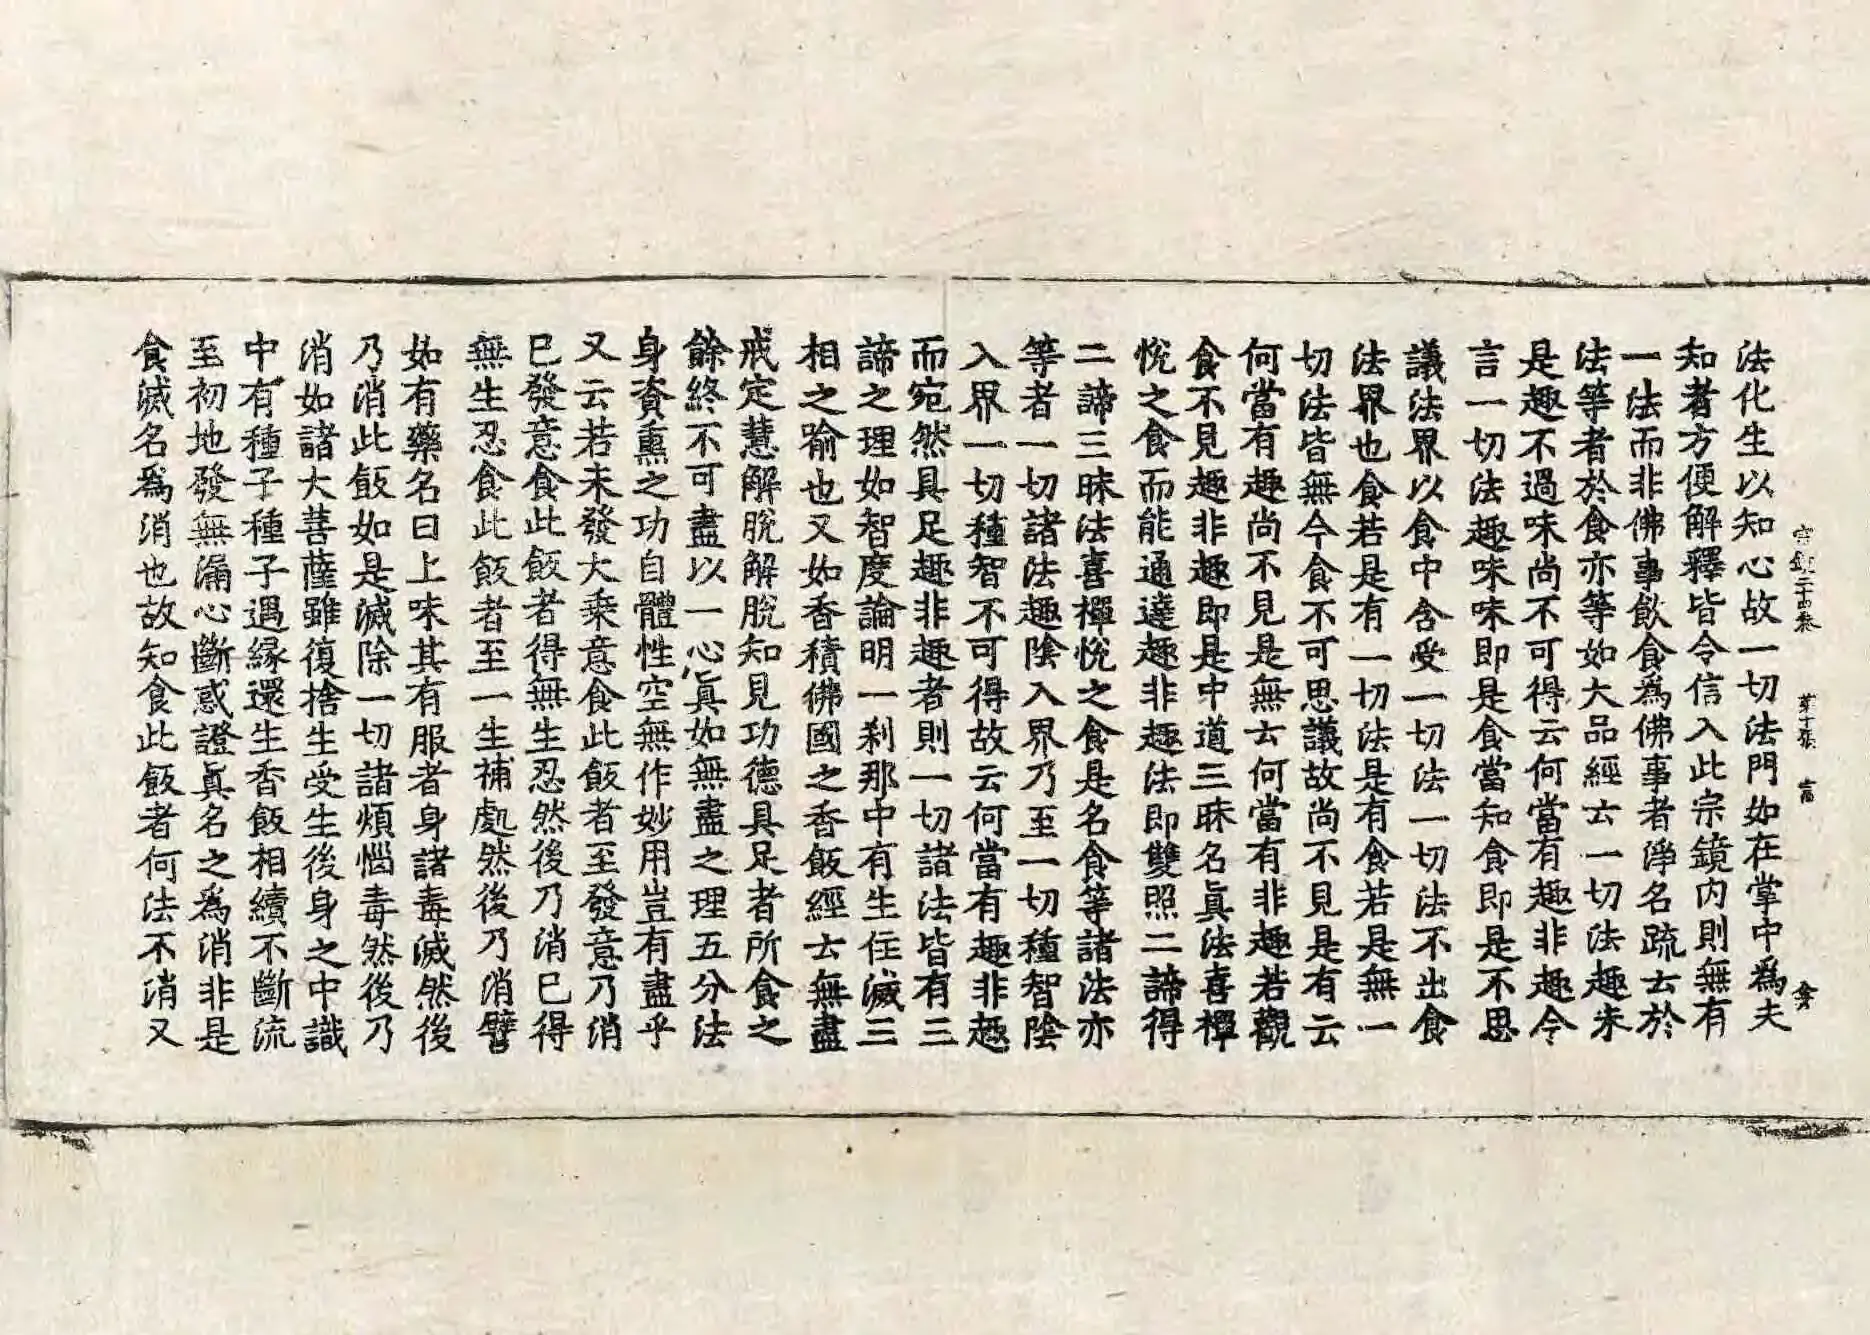 宗鏡二十四卷 第十張 富
法化生以知心故一切法門如在掌中爲夫
知者方便解釋皆令信入此宗鏡內則無有
一法而非佛事飲食爲佛事者淨名疏云於
法等者於食亦等如大品經云一切法趣味
是趣不過味尚不可得云何當有趣非趣今
言一切法趣味味即是食當知食即是不思
議法界以食中含受一切法一切法不出食
法界也食若是有一切法是有食若是無一
切法皆無今食不可思議故尚不見是有云
何當有趣尚不見是無云何當有非趣若觀
食不見趣非趣即是中道三昧名眞法喜禪
悅之食而能通達趣非趣法即雙照二諦得
二諦三昧法喜禪悅之食是名食等諸法亦
等者一切諸法趣陰入界乃至一切種智陰
入界一切種智不可得故云何當有趣非趣
而宛然具足趣非趣者則一切諸法皆有三
諦之理如智度論明一刹那中有生住滅三
相之喻也又如香積佛國之香飯經云無盡
戒定慧解脫解脫知見功德具足者所食之
餘終不可盡以一心眞如無盡之理五分法
身資熏之功自體性空無作妙用豈有盡乎
又云若未發大乘意食此飯者至發意乃消
已發意食此飯者得無生忍然後乃消已得
無生忍食此飯者至一生補處然後乃消譬
如有藥名曰上味其有服者身諸毒滅然後
乃消此飯如是滅除一切諸煩惱毒然後乃
消如諸大菩薩雖復捨生受生後身之中識
中有種子種子遇緣還生香飯相續不斷流
至初地發無漏心斷惑證眞名之爲消非是
食滅名爲消也故知食此飯者何法不消又